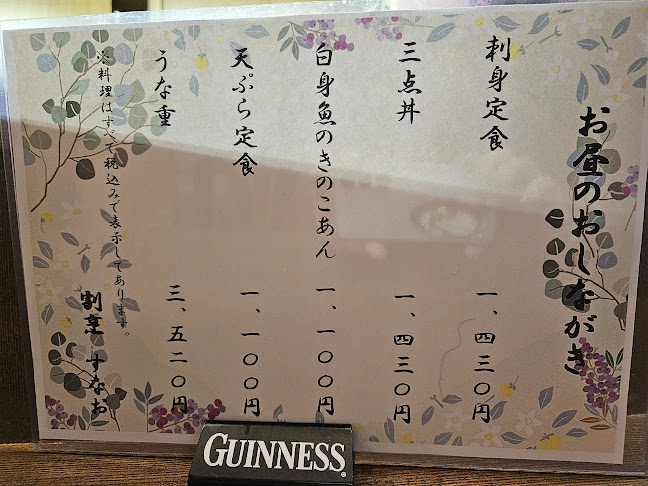 お昼のおしながき
刺身定食 一、四三〇円
三点丼 一、四三〇円
白身魚のきのこあん 一、一〇〇円
天ぷら定食 一、一〇〇円
うな重 三、五二〇円
※料理はすべて税込みで表示してあります。
割烹 すなお
GUINNESS®